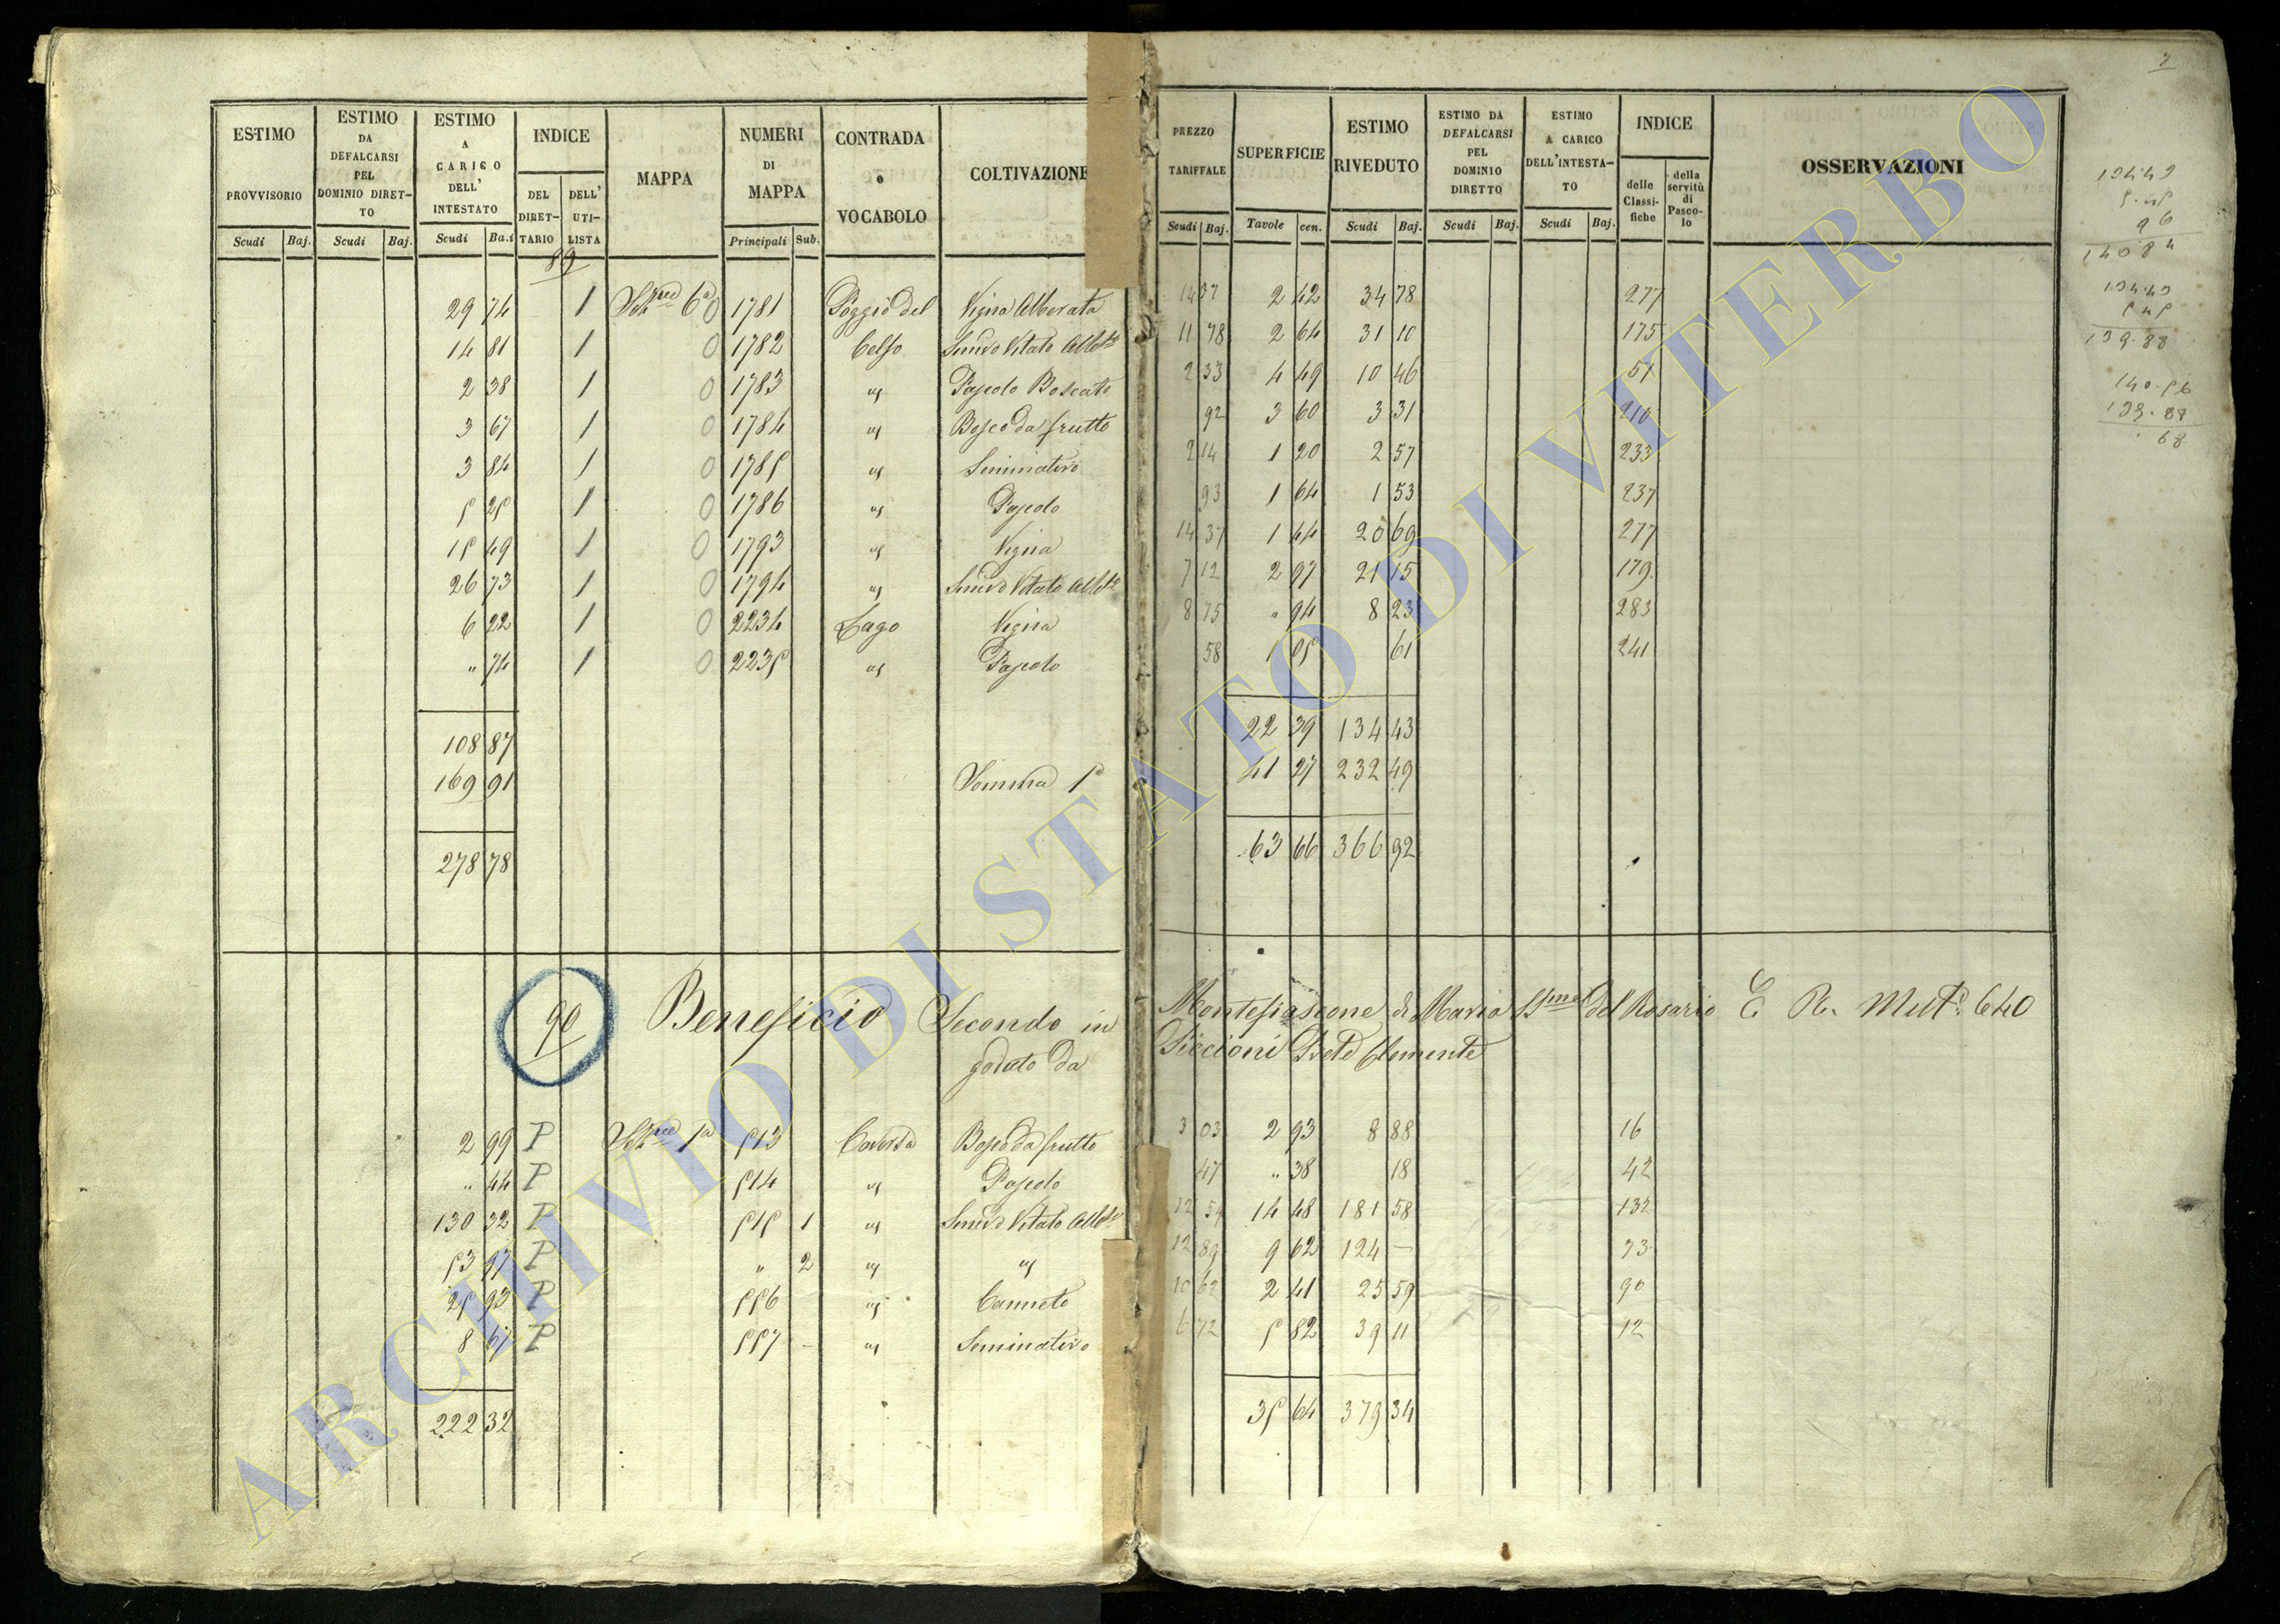 ESTIMO PROVVISORIO Scudi Baj.
ESTIMO DA DEFALCARSI PEL DOMINIO DIRETTO Scudi Baj.
ESTIMO A CARICO DELL' INTESTATO Scudi Ba.i
INDICE DEL DIRETTARIO DELL' UTILISTA
MAPPA
NUMERI DI MAPPA Principali Sub.
CONTRADA o VOCABOLO
COLTIVAZIONE
PREZZO TARIFFALE Scudi Baj.
SUPERFICIE Tavole cen.
ESTIMO RIVEDUTO Scudi Baj.
ESTIMO DA DEFALCARSI PEL DOMINIO DIRETTO Scudi Baj.
ESTIMO A CARICO DELL'INTESTATO Scudi Baj.
INDICE delle Classifiche della servitù di Pascolo
OSSERVAZIONI
89
29 74 1 6a 0 1781 Poggio del Vigna Alberata 14 37 2 42 34 78 277
14 81 1 0 1782 Celso Semivo Vitato Albto 11 78 2 64 31 10 175
2 38 1 0 1783 " Pascolo Boscato 2 33 4 49 10 46 51
3 67 1 0 1784 " Bosco da frutto 92 3 60 3 31 210
3 84 1 0 1785 " Seminativo 2 14 1 20 2 57 233
5 25 1 0 1786 " Pascolo 93 1 64 1 53 237
15 49 1 0 1793 " Vigna 14 37 1 44 20 69 277
26 73 1 0 1794 " Semivo Vitato Albto 7 12 2 97 21 15 179
6 22 1 0 2234 Lago Vigna 8 75 " 94 8 23 283
" 74 1 0 2235 " Pascolo 58 1 05 61 241
108 87 22 39 134 43
169 91 Somma 41 27 232 49
278 78 63 66 366 92
90 Beneficio Secondo in Montefiascone di Maria SSma del Rosario E R. Mut. 640
goduto da Piccioni Clemente
2 99 P 1a 513 Bosco da frutto 3 03 2 93 8 88 16
" 44 P 514 " Pascolo 47 " 38 18 42
130 32 P 515 1 " Semivo Vitato Albto 12 54 14 48 181 58 132
53 97 P " 2 " " 12 89 9 62 124 — 73
25 93 P 556 " Canneto 10 62 2 41 25 59 90
8 67 P 557 - " Seminativo 6 72 5 82 39 11 12
222 32 35 64 379 34
134.43
5.45
96
140.84
134.43
5 45
139.88
ARCHIVIO DI STATO DI VITERBO